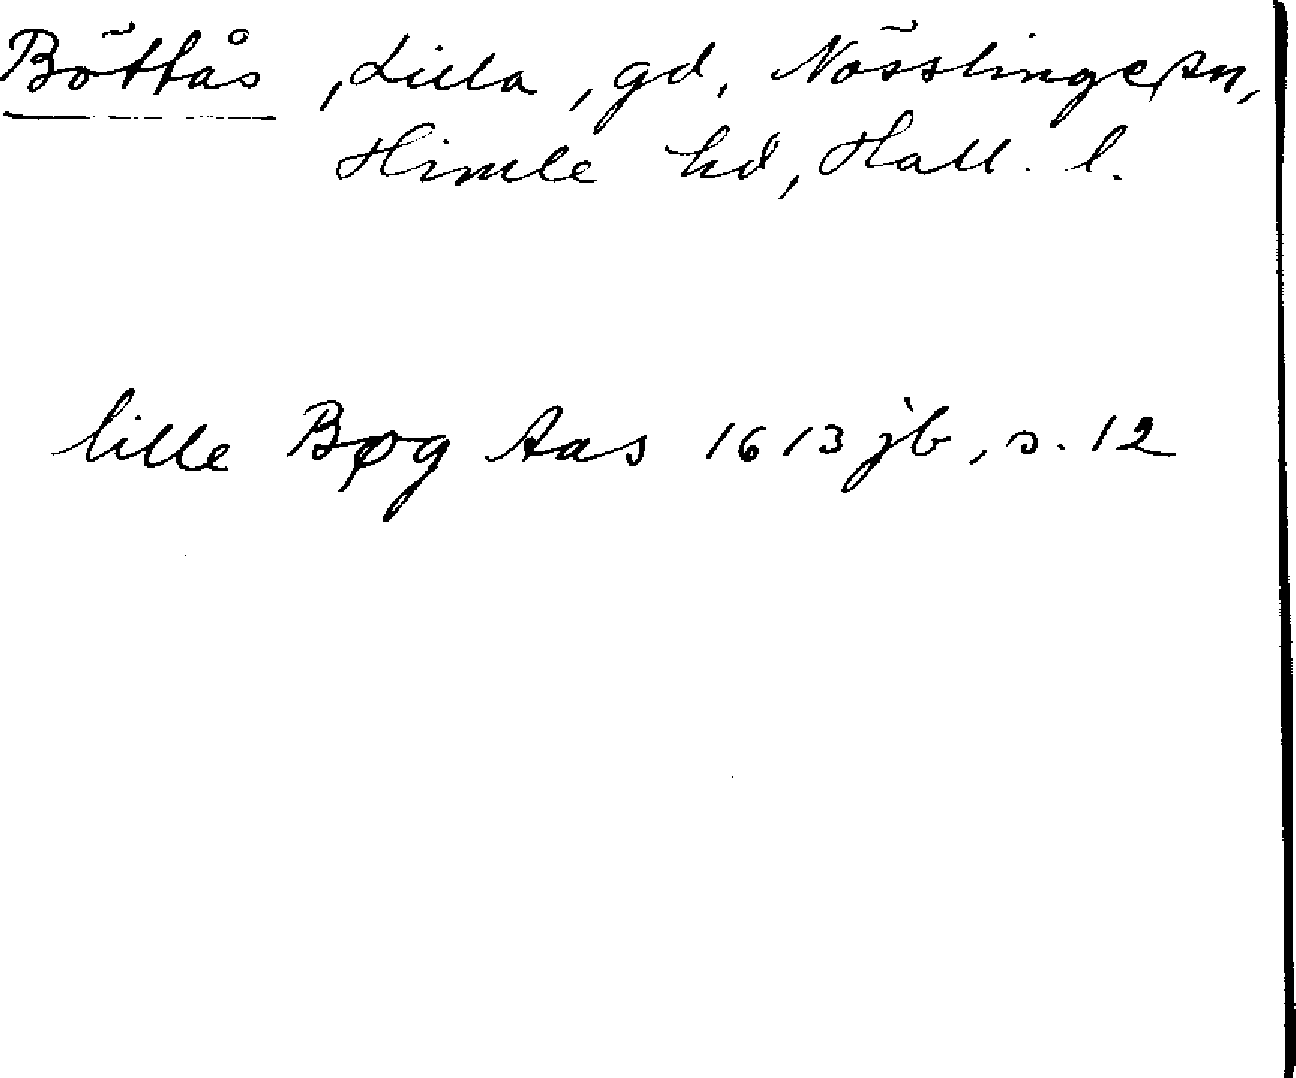 Böttås, Lilla, gd, Nösslinge sn,
Himle hd, Hall. l.
lille Bøg Aas 1613 jb, s. 12